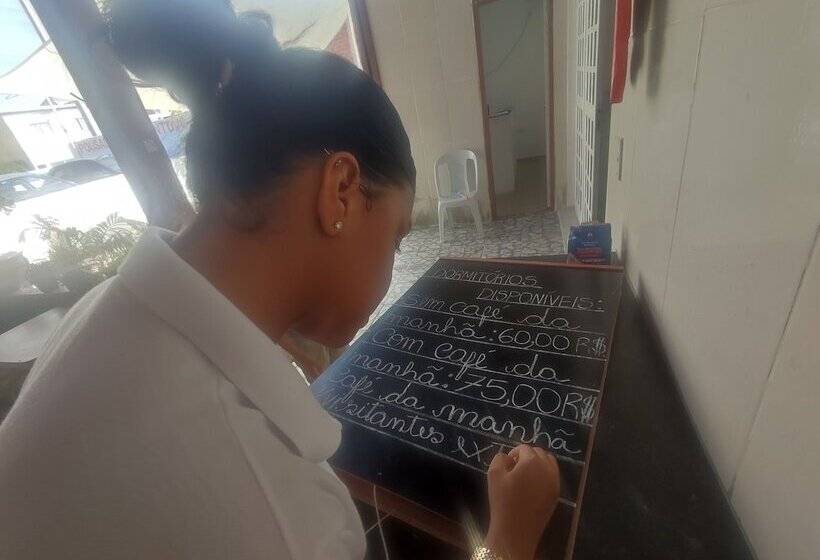 DORMITÓRIOS
DISPONÍVEIS:
Sem café da
manhã: 60,00 R$
Com café da
manhã: 75,00 R$
Café da manhã
visitantes